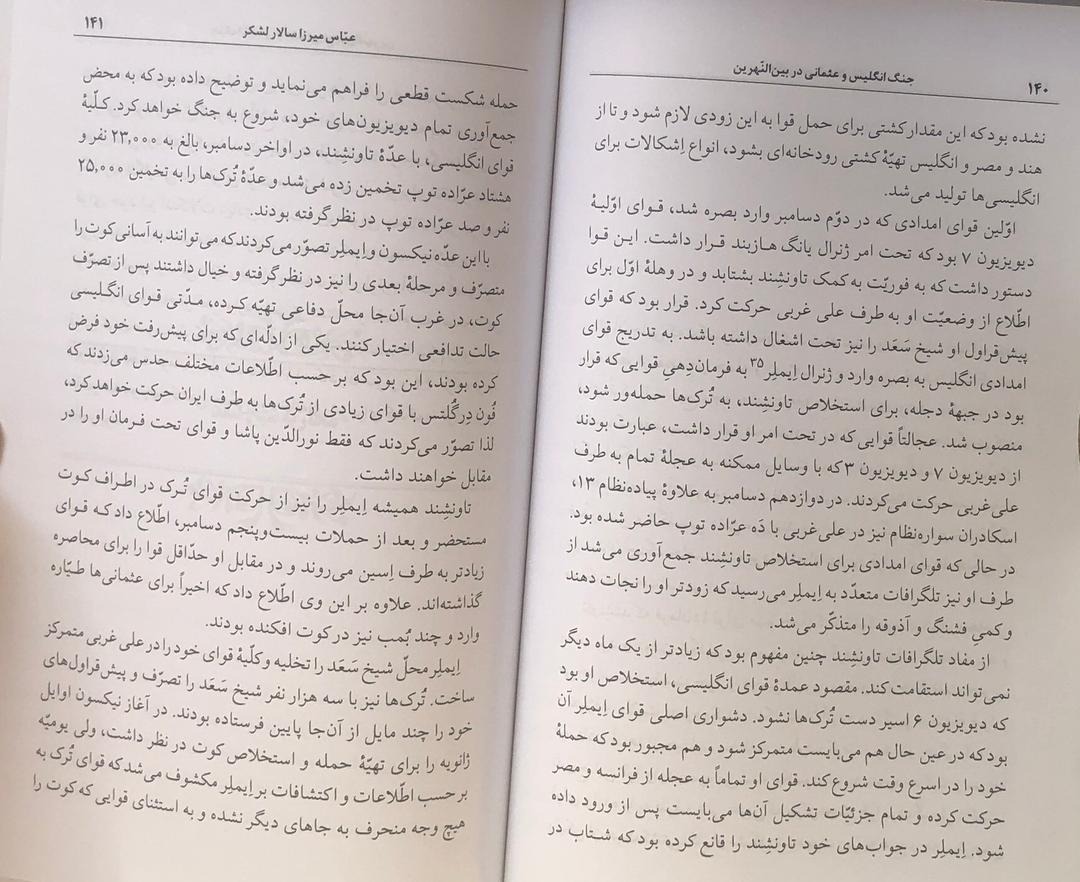 ۱۴۰
جنگ انگلیس و عثمانی در بین‌النّهرین
نشده بود که این مقدار کشتی برای حمل قوا به این زودی لازم شود و تا از
هند و مصر و انگلیس تهیّهٔ کشتی رودخانه‌ای بشود، انواع اِشکالات برای
انگلیسی‌ها تولید می‌شد.
اوّلین قوای امدادی که در دوّم دسامبر وارد بصره شد، قوای اوّلیهٔ
دیویزیون ۷ بود که تحت امر ژنرال یانگ هازبند قرار داشت. این قوا
دستور داشت که به فوریّت به کمک تاونشِند بشتابد و در وهلهٔ اوّل برای
اطّلاع از وضعیّت او به طرف علی غربی حرکت کرد. قرار بود که قوای
پیش‌قراول او شیخ سَعَد را نیز تحت اشغال داشته باشد. به تدریج قوای
امدادی انگلیس به بصره وارد و ژنرال اِیملِر۳۵ به فرمان‌دِهیِ قوایی که قرار
بود در جبههٔ دجله، برای استخلاص تاونشِند، به تُرک‌ها حمله‌ور شود،
منصوب شد. عجالتاً قوایی که در تحت امر او قرار داشت، عبارت بودند
از دیویزیون ۷ و دیویزیون ۳ که با وسایل ممکنه به عجلهٔ تمام به طرف
علی غربی حرکت می‌کردند. در دوازدهم دسامبر به علاوهٔ پیاده‌نظام ۱۳،
اسکادران سواره‌نظام نیز در علی‌غربی با دَه عرّاده توپ حاضر شده بود.
در حالی که قوای امدادی برای استخلاص تاونشِند جمع‌آوری می‌شد از
طرف او نیز تلگرافات متعدّد به اِیملِر می‌رسید که زودتر او را نجات دهند
و کمیِ فشنگ و آذوقه را متذکّر می‌شد.
از مفاد تلگرافات تاونشِند چنین مفهوم بود که زیادتر از یک ماه دیگر
نمی‌تواند استقامت کند. مقصود عمدهٔ قوای انگلیسی، استخلاص او بود
که دیویزیون ۶ اسیر دست تُرک‌ها نشود. دشواری اصلی قوای اِیملِر آن
بود که در عین حال هم می‌بایست متمرکز شود و هم مجبور بود که حملهٔ
خود را در اسرع وقت شروع کند. قوای او تماماً به عجله از فرانسه و مصر
حرکت کرده و تمام جزئیّات تشکیل آن‌ها می‌بایست پس از ورود داده
شود. اِیملِر در جواب‌های خود تاونشِند را قانع کرده بود که شتاب در
عبّاس میرزا سالار لشکر
۱۴۱
حمله شکست قطعی را فراهم می‌نماید و توضیح داده بود که به محض
جمع‌آوری تمام دیویزیون‌های خود، شروع به جنگ خواهد کرد. کلّیهٔ
قوای انگلیسی، با عدّهٔ تاونشِند، در اواخر دسامبر، بالغ به ۲۳,۰۰۰ نفر و
هشتاد عرّاده توپ تخمین زده می‌شد و عدّهٔ تُرک‌ها را به تخمین ۲۵,۰۰۰
نفر و صد عرّاده توپ در نظر گرفته بودند.
با این عدّه نیکسون و اِیملِر تصوّر می‌کردند که می‌توانند به آسانی کوت را
متصرّف و مرحلهٔ بعدی را نیز در نظر گرفته و خیال داشتند پس از تصرّف
کوت، در غرب آن‌جا محلّ دفاعی تهیّه کرده، مدّتی قوای انگلیسی
حالت تدافعی اختیار کنند. یکی از ادلّه‌ای که برای پیش‌رفت خود فرض
کرده بودند، این بود که بر حسب اطّلاعات مختلف حدس می‌زدند که
فُون دِرگُلتس با قوای زیادی از تُرک‌ها به طرف ایران حرکت خواهد کرد،
لذا تصوّر می‌کردند که فقط نورالدّین پاشا و قوای تحت فرمان او را در
مقابل خواهند داشت.
تاونشِند همیشه اِیملِر را نیز از حرکت قوای تُرک در اطراف کوت
مستحضر و بعد از حملات بیست‌وپنجم دسامبر، اطّلاع داد که قوای
زیادتر به طرف اِسین می‌روند و در مقابل او حدّاقل قوا را برای محاصره
گذاشته‌اند. علاوه بر این وی اطّلاع داد که اخیراً برای عثمانی‌ها طیّاره
وارد و چند بُمب نیز در کوت افکنده بودند.
اِیملِر محلّ شیخ سَعَد را تخلیه و کلّیهٔ قوای خود را در علی غربی متمرکز
ساخت. تُرک‌ها نیز با سه هزار نفر شیخ سَعَد را تصرّف و پیش‌قراول‌های
خود را چند مایل از آن‌جا پایین فرستاده بودند. در آغاز نیکسون اوایل
ژانویه را برای تهیّهٔ حمله و استخلاص کوت در نظر داشت، ولی یومیّه
بر حسب اطّلاعات و اکتشافات بر اِیملِر مکشوف می‌شد که قوای تُرک به
هیچ وجه منحرف به جاهای دیگر نشده و به استثنای قوایی که کوت را